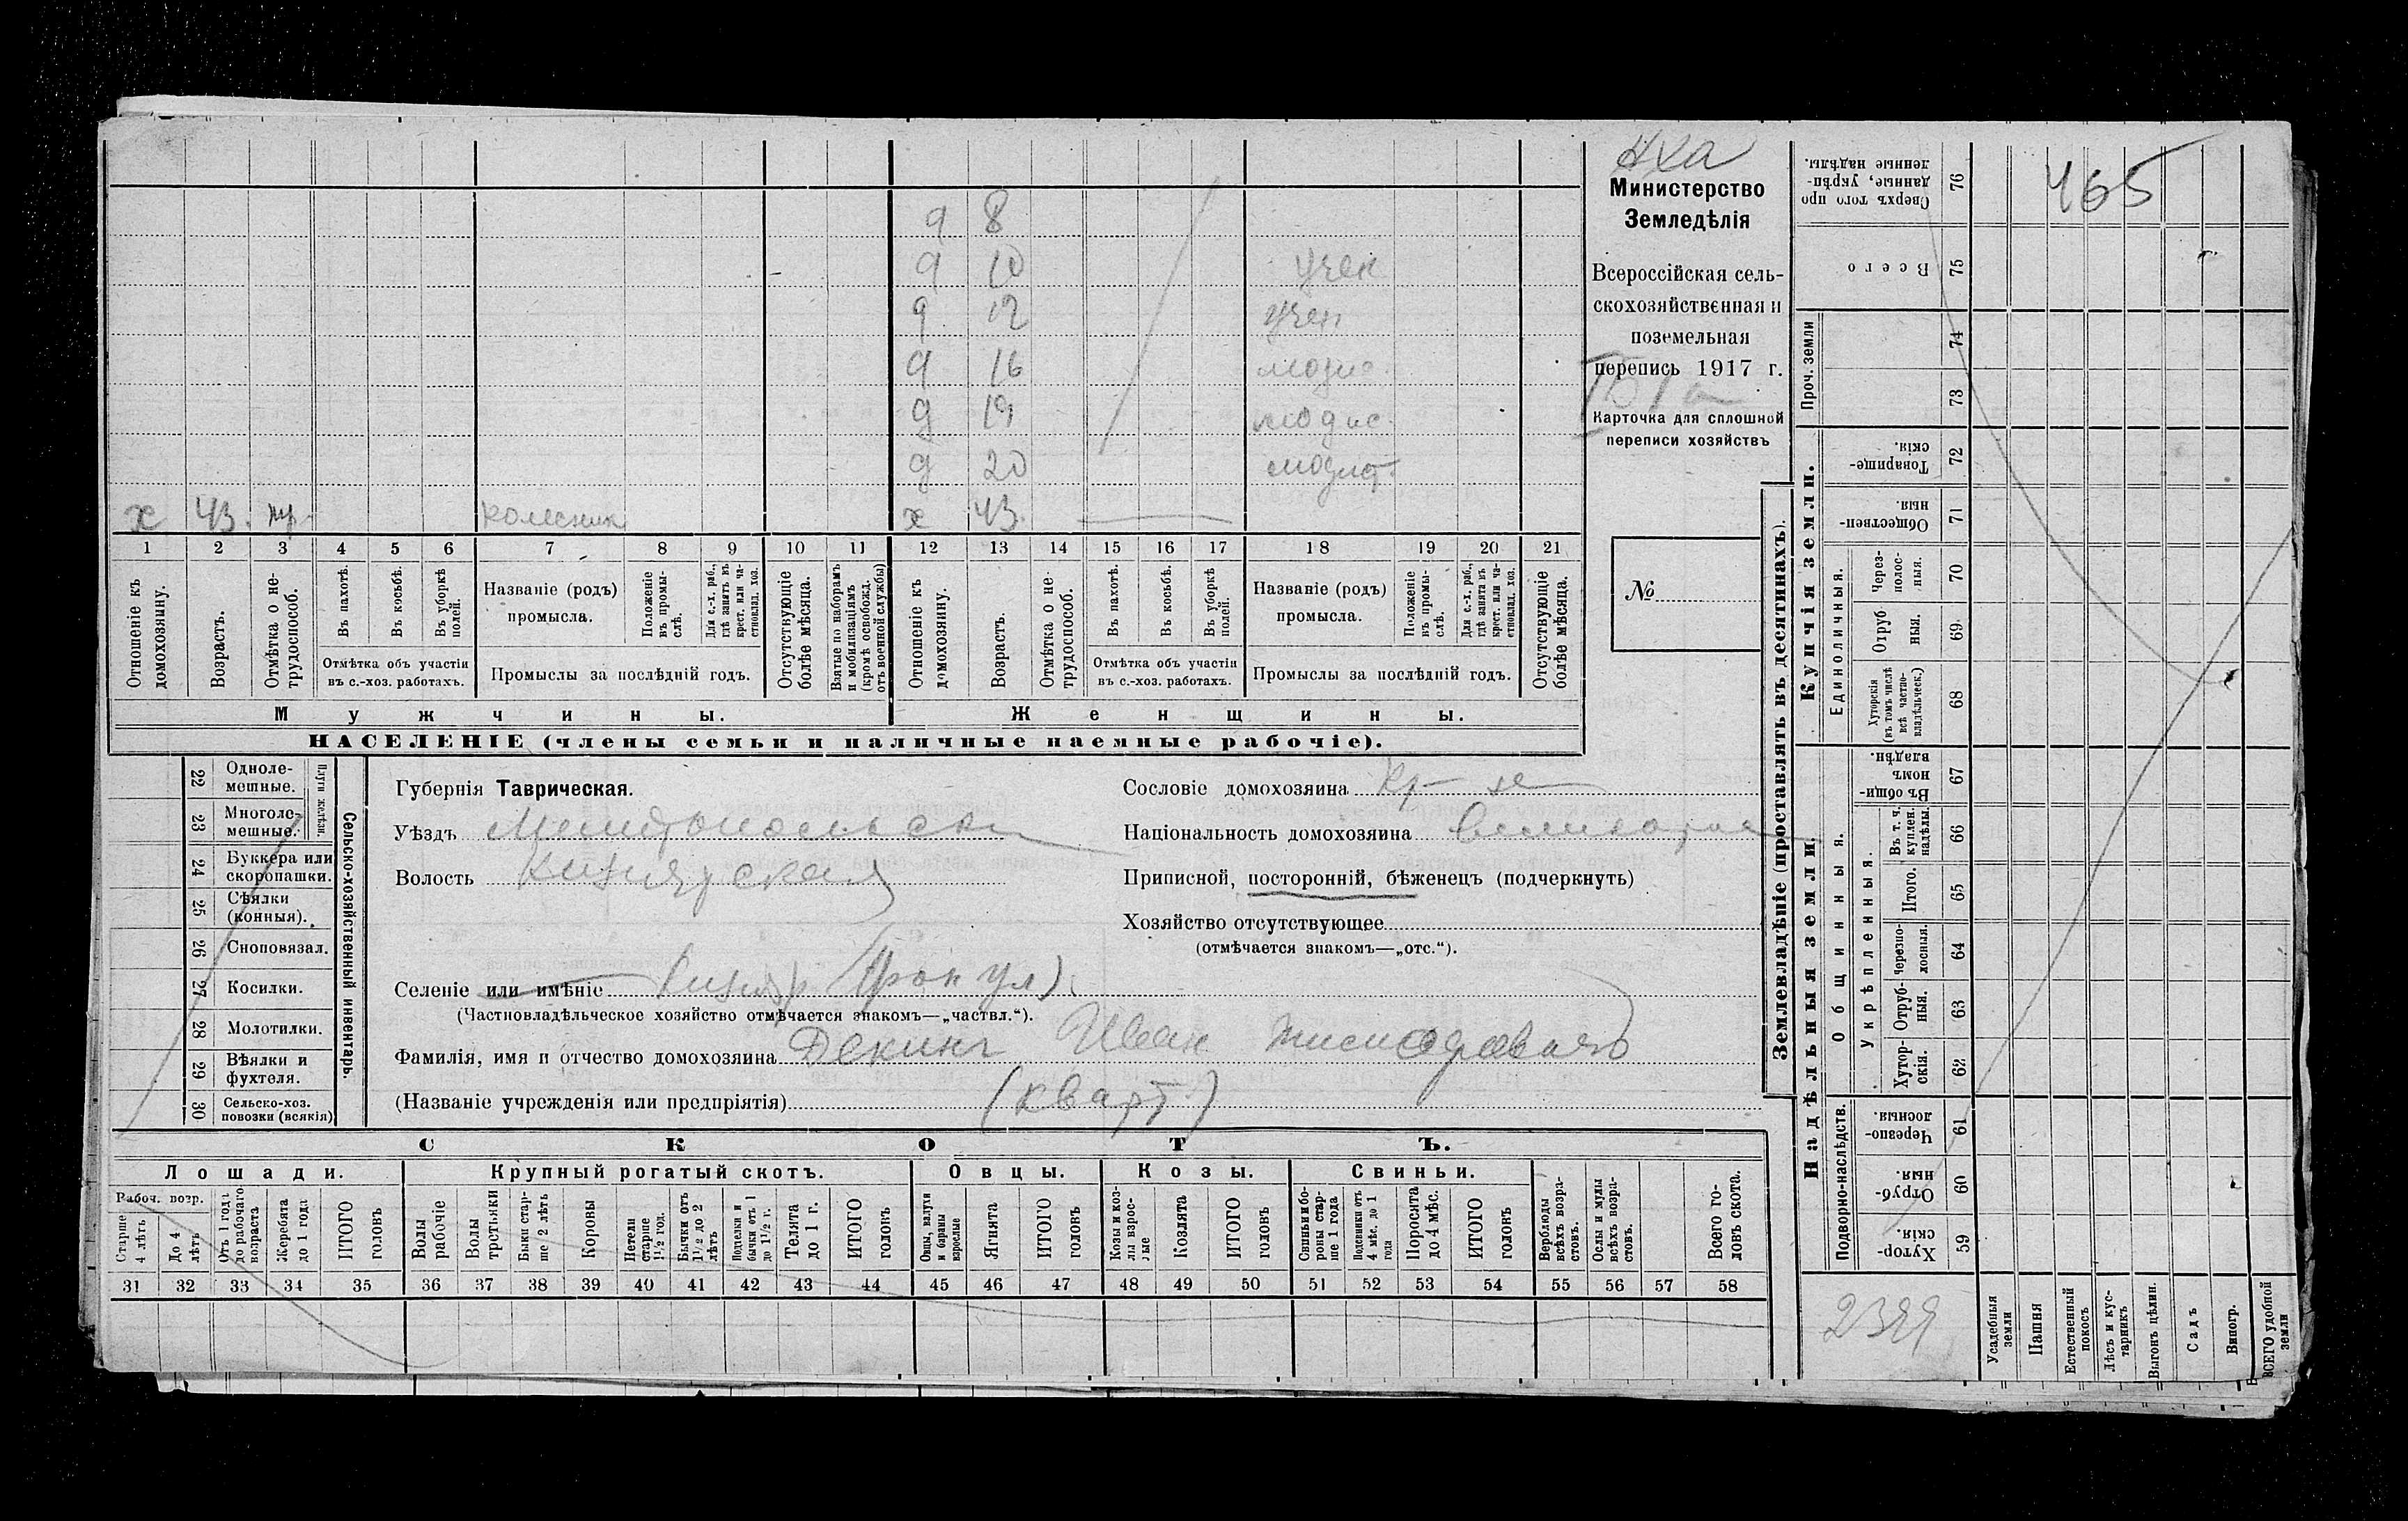 Министерство
Земледѣлія
Всероссійская сель-
скохозяйственная и
поземельная
перепись 1917 г.
Карточка для сплошной
переписи хозяйствъ
№
465
д 8
д 10 учен
д 12 учен
д 16 модис
д 19 модис
д 20 модист
х 43 колесник х 43
1 2 3 4 5 6 7 8 9 10 11 12 13 14 15 16 17 18 19 20 21
Отношеніе къ домохозяину.
Возрастъ.
Отмѣтка о не-трудоспособ.
Въ пахотѣ.
Въ косьбѣ.
Въ уборкѣ полей.
Отмѣтка объ участіи въ с.-хоз. работахъ.
Названіе (родъ) промысла.
Положеніе въ промы-слѣ.
Для с.-х. раб., гдѣ занятъ въ крест. или ча-стновлад. хоз.
Промыслы за послѣдній годъ.
Отсутствующіе болѣе мѣсяца.
Взятые по наборамъ и мобилизаціямъ (кромѣ освобожд. отъ военной службы)
Отношеніе къ домохозяину.
Возрастъ.
Отмѣтка о не-трудоспособ.
Въ пахотѣ.
Въ косьбѣ.
Въ уборкѣ полей.
Отмѣтка объ участіи въ с.-хоз. работахъ.
Названіе (родъ) промысла.
Положеніе въ промы-слѣ.
Для с.-х. раб., гдѣ занята въ крест. или ча-стновлад. хоз.
Промыслы за послѣдній годъ.
Отсутствующіе болѣе мѣсяца.
Мужчины.
Женщины.
НАСЕЛЕНІЕ (члены семьи и наличные наемные рабочіе).
Сельско-хозяйственный инвентарь.
Плуги желѣзн.
22 Одноле-мешные.
23 Многоле-мешные.
24 Буккера или скоропашки.
25 Сѣялки (конныя).
26 Сноповязал.
27 Косилки.
28 Молотилки.
29 Вѣялки и фухтеля.
30 Сельско-хоз. повозки (всякія)
Губернія Таврическая.
Уѣздъ Мелитопольский
Волость Кизиярская
Селеніе или имѣніе Кизияр (Фрон ул)
(Частновладѣльческое хозяйство отмѣчается знакомъ—„частвл.“).
Фамилія, имя и отчество домохозяина Декинг Иван
(Названіе учрежденія или предпріятія) (кварт)
Сословіе домохозяина Кр-не
Національность домохозяина
Приписной, посторонній, бѣженецъ (подчеркнуть)
Хозяйство отсутствующее
(отмѣчается знакомъ—„отс.“).
СКОТЪ.
Лошади. Крупный рогатый скотъ. Овцы. Козы. Свиньи.
Рабоч. возр.
Старше 4 лѣтъ
До 4 лѣтъ
Отъ 1 года до рабочаго возраста
Жеребята до 1 года
ИТОГО головъ
Волы рабочіе
Волы третьяки
Быки стар-ше 2 лѣтъ
Коровы
Нетели старше 1½ год.
Бычки отъ 1½ до 2 лѣтъ
Подтелки и бычки отъ 1 до 1½ г.
Телята до 1 г.
ИТОГО головъ
Овцы, валухи и бараны взрослые
Ягнята
ИТОГО головъ
Козы и коз-лы взрос-лые
Козлята
ИТОГО головъ
Свиньи и бо-роны стар-ше 1 года
Подсвинки отъ 4 мѣс. до 1 года
Поросята до 4 мѣс.
ИТОГО головъ
Верблюды всѣхъ возра-стовъ.
Ослы и мулы всѣхъ возра-стовъ.
Всего го-ловъ скота.
31 32 33 34 35 36 37 38 39 40 41 42 43 44 45 46 47 48 49 50 51 52 53 54 55 56 57 58
Землевладѣніе (проставлять въ десятинахъ).
Купчія земли.
Надѣльныя земли.
Сверхъ того про данные, укрѣп-ленные надѣлы. 76
Всего 75
Проч. земли
74
73
Товарище-скія. 72
Обществен-ныя. 71
Единоличныя.
Через-полос-ныя. 70
Отруб ныя. 69
Хуторскія (въ томъ числѣ всѣ частно-владѣльческ.) 68
Въ общи-номъ владѣн. 67
Общинныя.
Укрѣпленныя.
Въ т. ч. куплен. надѣлы. 66
Итого. 65
Черезпо-лосныя. 64
Отруб-ныя. 63
Хутор-скія. 62
Подворно-наслѣдств.
Черезпо-лосныя. 61
Отруб-ныя. 60
Хутор-скія. 59
Усадебныя земли
Пашня
Естественный покосъ
Лѣсъ и кус-тарникъ
Выгонъ цѣлин.
Садъ
Виногр.
ВСЕГО удобной земли